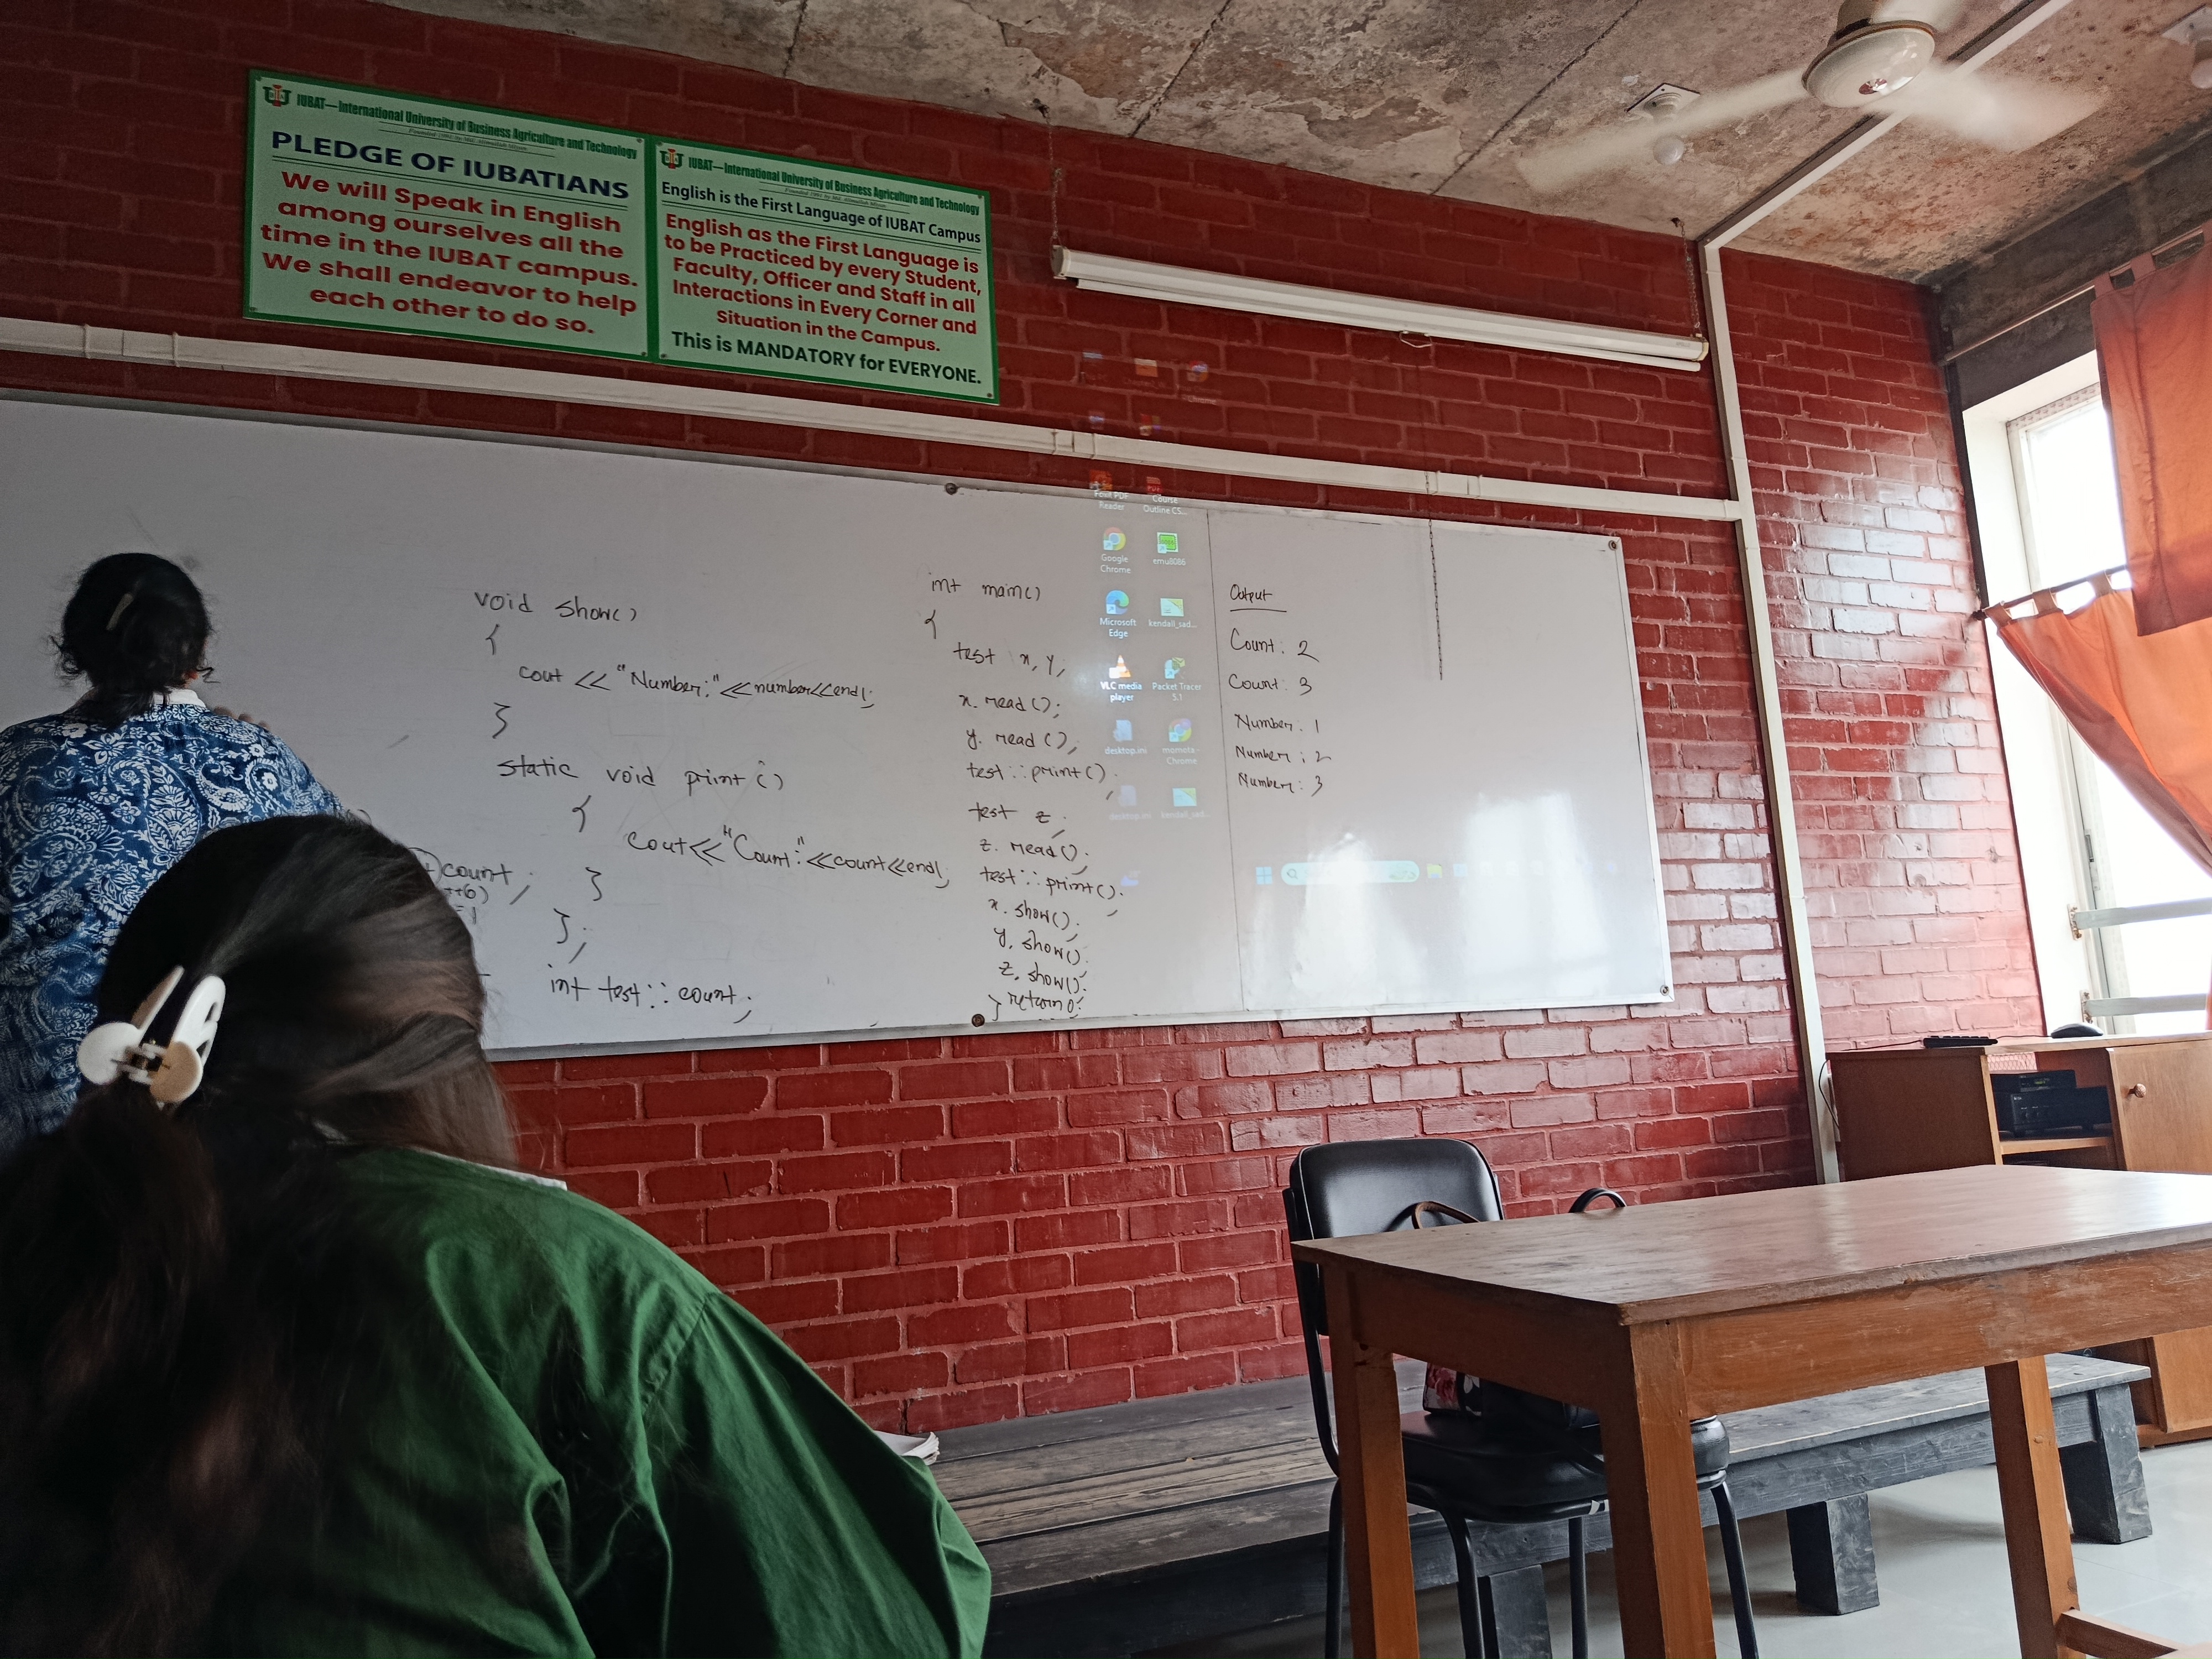 IUBAT—International University of Business Agriculture and Technology
Founded 1991 by Md. Alimullah Miyan
PLEDGE OF IUBATIANS
We will Speak in English
among ourselves all the
time in the IUBAT campus.
We shall endeavor to help
each other to do so.
IUBAT—International University of Business Agriculture and Technology
Founded 1991 by Md. Alimullah Miyan
English is the First Language of IUBAT Campus
English as the First Language is
to be Practiced by every Student,
Faculty, Officer and Staff in all
Interactions in Every Corner and
Situation in the Campus.
This is MANDATORY for EVERYONE.
count;
void show()
{
cout << "Number:"<<number<<endl;
}
static void print()
{
cout<<"Count:"<<count<<endl;
}
};
int test::count;
int main()
{
test x, y;
x. read();
y. read();
test::print();
test z;
z. read();
test::print();
x. show();
y. show();
z. show();
return 0;
}
Foxit PDF
Reader
Course
Outline CS...
Google
Chrome
emu8086
Microsoft
Edge
kendall_sad...
VLC media
player
Packet Tracer
5.1
desktop.ini
momota -
Chrome
desktop.ini
kendall_sad...
Output
Count: 2
Count: 3
Number: 1
Number: 2
Number: 3